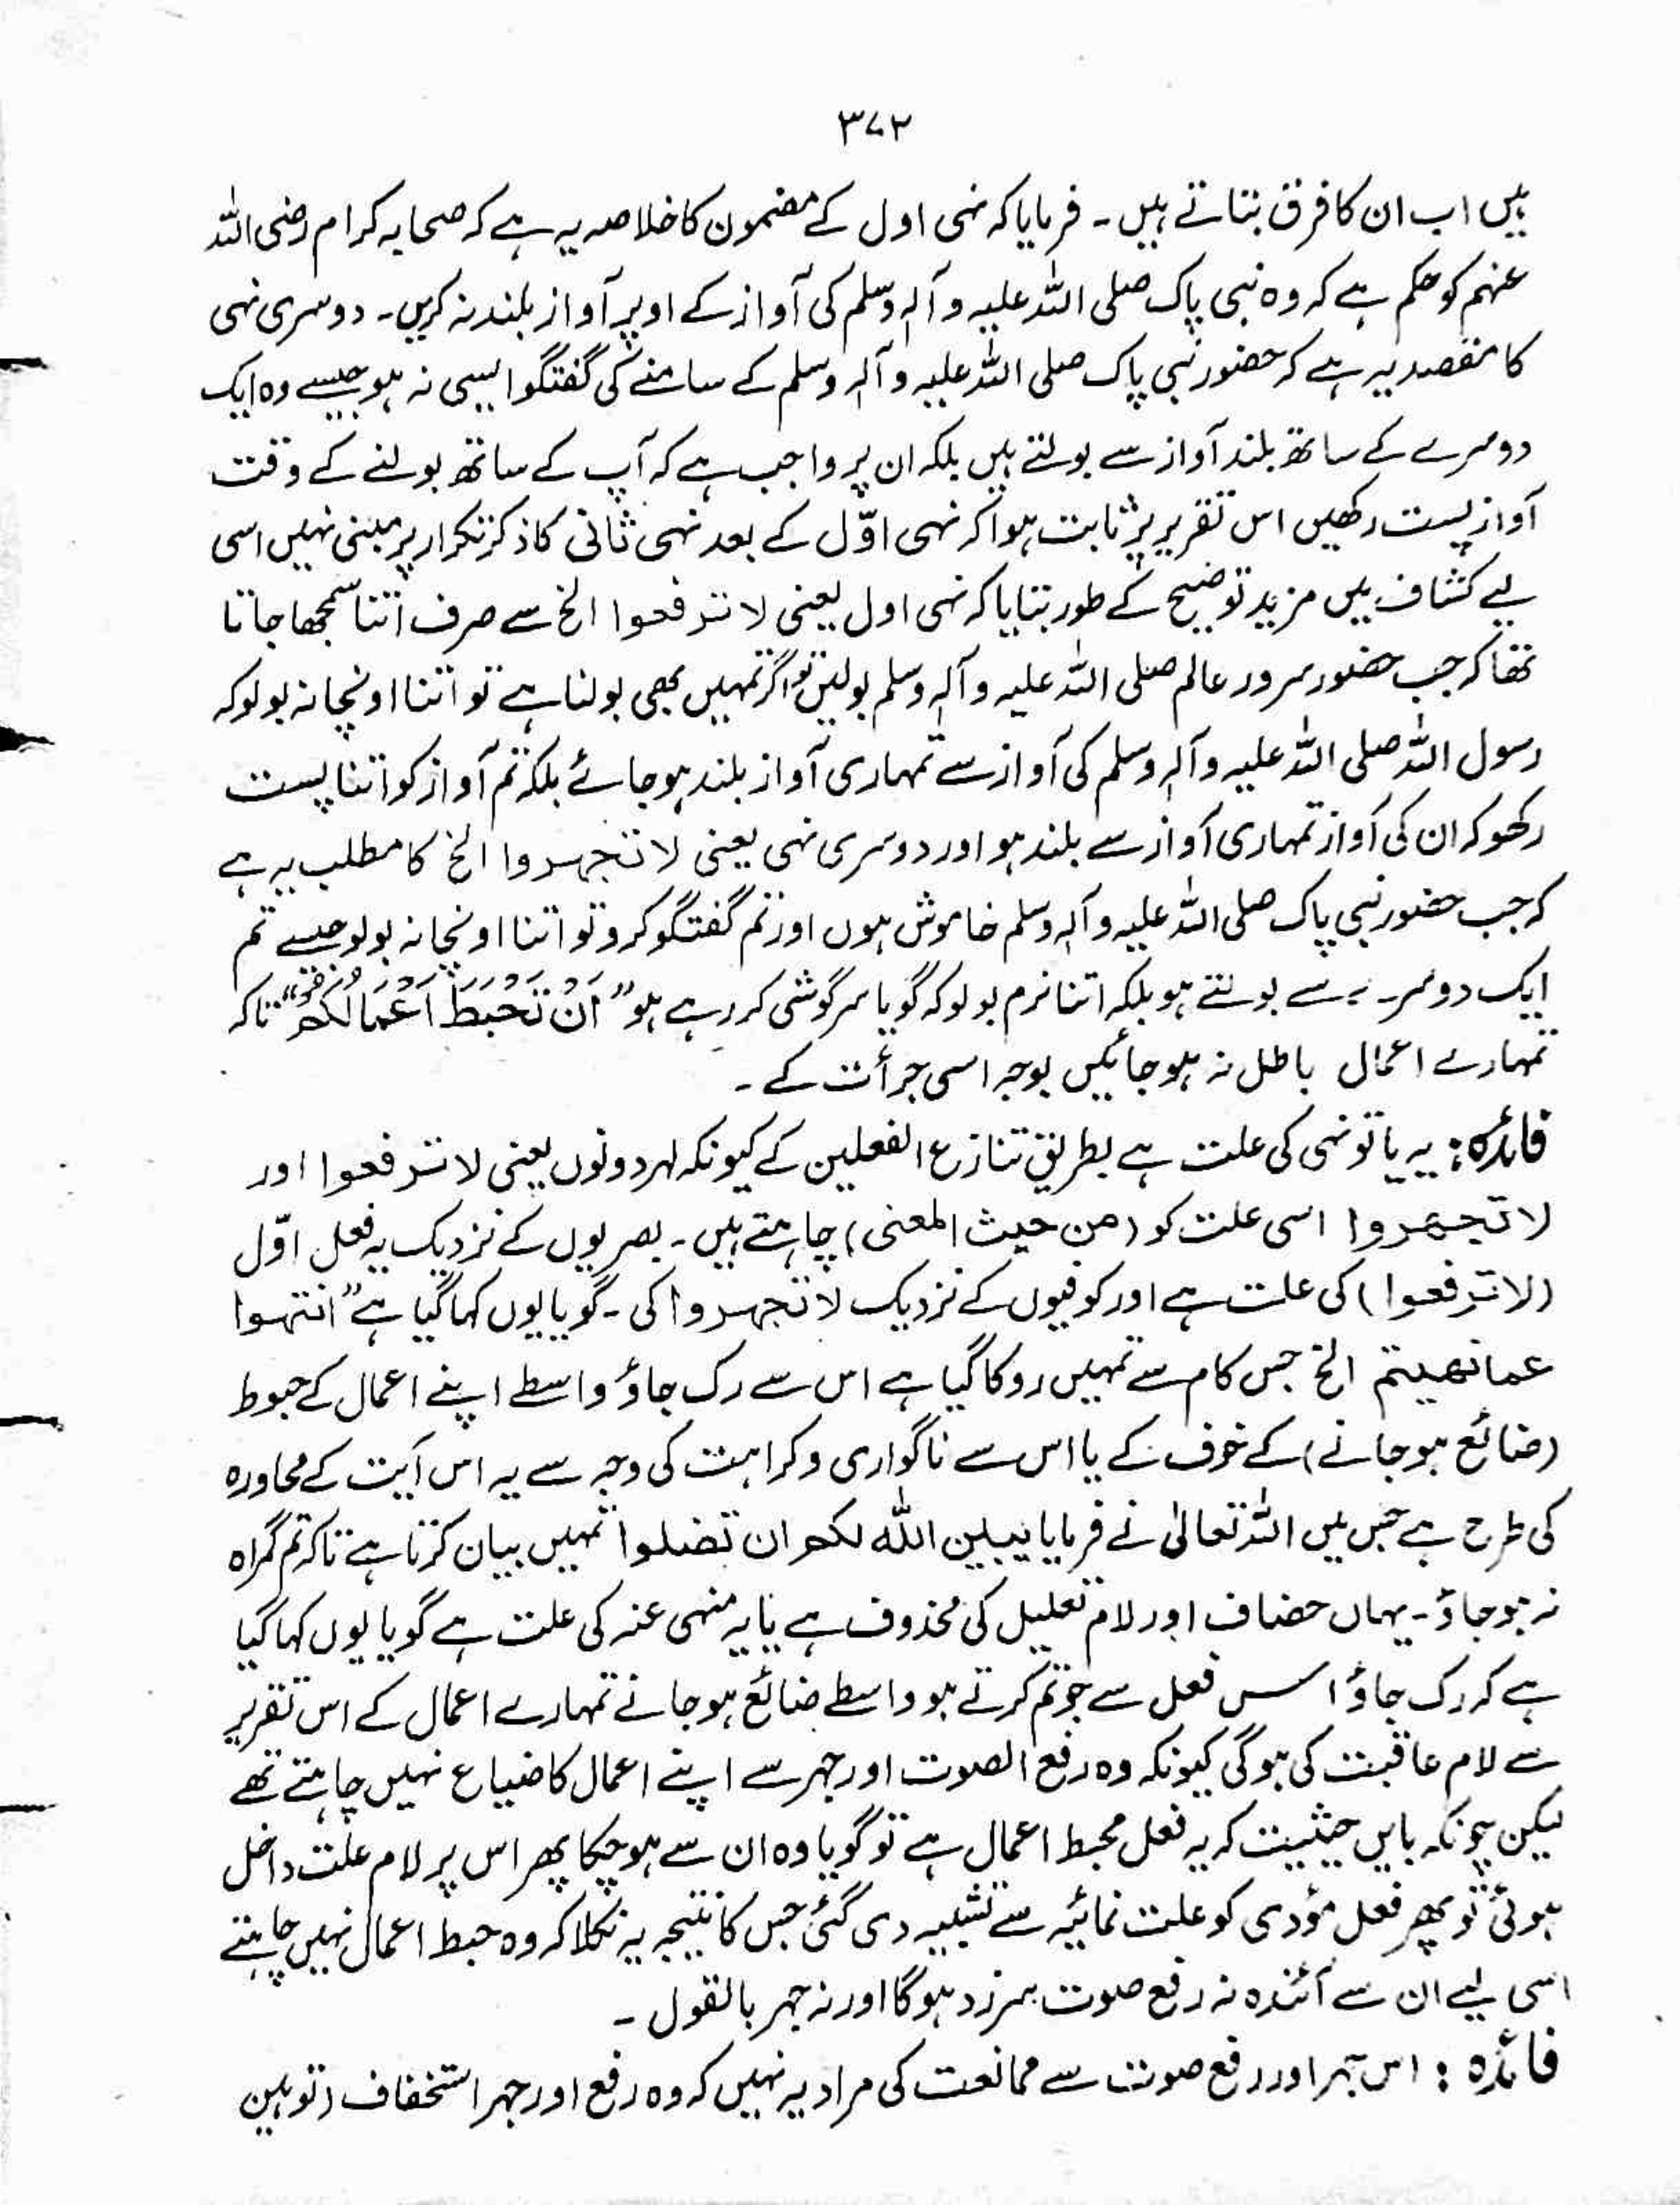 ۳۷۲
ہیں اب ان کا فرق بتاتے ہیں ۔ فرمایا کہ نہی اول کے مضمون کا خلاصہ یہ ہے کہ صحابہ کرام رضی اللہ
عنہم کو حکم ہے کہ وہ نبی پاک صلی اللہ علیہ وآلہٖ وسلم کی آواز کے اوپر آواز بلند نہ کریں ۔ دوسری نہی
کا مقصد یہ ہے کہ حضور نبی پاک صلی اللہ علیہ وآلہٖ وسلم کے سامنے کی گفتگو ایسی نہ ہو جیسے وہ ایک
دوسرے کے ساتھ بلند آواز سے بولتے ہیں بلکہ ان پر واجب ہے کہ آپ کے ساتھ بولنے کے وقت
آواز پست رکھیں اس تقریر پر ثابت ہوا کہ نہی اوّل کے بعد نہی ثانی کا ذکر تکرار پر مبنی نہیں اسی
لیے کشاف میں مزید توضیح کے طور بتایا کہ نہی اول یعنی لا ترفعوا الخ سے صرف اتنا سمجھا جاتا
تھا کہ جب حضور سرور عالم صلی اللہ علیہ وآلہٖ وسلم بولیں تو اگر تمہیں بھی بولنا ہے تو اتنا اونچا نہ بولو کہ
رسول اللہ صلی اللہ علیہ وآلہٖ وسلم کی آواز سے تمہاری آواز بلند ہو جائے بلکہ تم آواز کو اتنا پست
رکھو کہ ان کی آواز تمہاری آواز سے بلند ہو اور دوسری نہی یعنی لا تجہروا الخ کا مطلب یہ ہے
کہ جب حضور نبی پاک صلی اللہ علیہ وآلہٖ وسلم خاموش ہوں اور تم گفتگو کرو تو اتنا اونچا نہ بولو جیسے تم
ایک دوسرے سے بولتے ہو بلکہ اتنا نرم بولو کہ گویا سرگوشی کر رہے ہو ”اَنْ تَحْبَطَ اَعْمَالُكُمْ“ تاکہ
تمہارے اعمال باطل نہ ہو جائیں بوجہ اسی جرأت کے ۔
فائدہ : یہ یا تو نہی کی علت ہے بطریق تنازع الفعلین کے کیونکہ ہر دونوں یعنی لا ترفعوا اور
لا تجھروا اسی علت کو (من حیث المعنی) چاہتے ہیں ۔ بصریوں کے نزدیک یہ فعل اوّل
(لا ترفعوا) کی علت ہے اور کوفیوں کے نزدیک لا تجہروا کی ۔ گویا یوں کہا گیا ہے ”انتہوا
عما نھیتم الخ جس کام سے تمہیں روکا گیا ہے اس سے رک جاؤ واسطے اپنے اعمال کے حبوط
(ضائع ہو جانے) کے خوف کے یا اس سے ناگواری و کراہت کی وجہ سے یہ اس آیت کے محاورہ
کی طرح ہے جس میں اللہ تعالیٰ نے فرمایا یبین اللہ لکم ان تضلوا تمہیں بیان کرتا ہے تاکہ تم گمراہ
نہ ہو جاؤ ۔ یہاں مضاف اور لام تعلیل کی محذوف ہے یا یہ منہی عنہ کی علت ہے گویا یوں کہا گیا
ہے کہ رک جاؤ اس فعل سے جو تم کرتے ہو واسطے ضائع ہو جانے تمہارے اعمال کے اس تقریر
سے لام عاقبت کی ہوگی کیونکہ وہ رفع الصوت اور جہر سے اپنے اعمال کا ضیاع نہیں چاہتے تھے
لیکن چونکہ بایں حیثیت کہ یہ فعل محبط اعمال ہے تو گویا وہ ان سے ہو چکا پھر اس پر لام علت داخل
ہوئی تو پھر فعل مؤدی کو علت غائیہ سے تشبیہ دی گئی جس کا نتیجہ یہ نکلا کہ وہ حبط اعمال نہیں چاہتے
اسی لیے ان سے آئندہ نہ رفع صوت سرزد ہوگا اور نہ جہر بالقول ۔
فائدہ : اس جہر اور رفع صوت سے ممانعت کی مراد یہ نہیں کہ وہ رفع اور جہر استخفاف (توہین